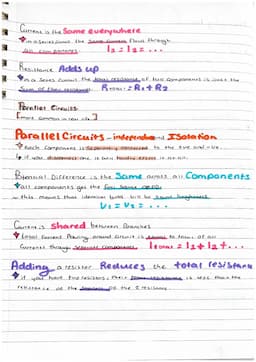 Current is the Same everywhere
in a series circuit the same current flows through
all components I₁ = I₂ = ...
Resistance Adds up
in a series circuit the total resistance of two components is just the
sum of their resistances. Rtotal = R₁ + R₂
Parallel Circuits
[more common in real life]
Parallel Circuits - independence and Isolation
each component is separately connected to the +ve and -ve.
if you disconnect one it
Potential Difference is the Same across all Components
all components get the full source pd
this means that identical bulbs will be same brightness
V₁ = V₂ = ...
Current is Shared between Branches
total Current flowing around Circuit is equal to total of all
Currents through separate components. Itotal = I₁ + I₂ + ...
Adding a resistor Reduces the total resistance
if you have two resistors, their total resistance is less than the
resistance of the smallest of the 2 resistors